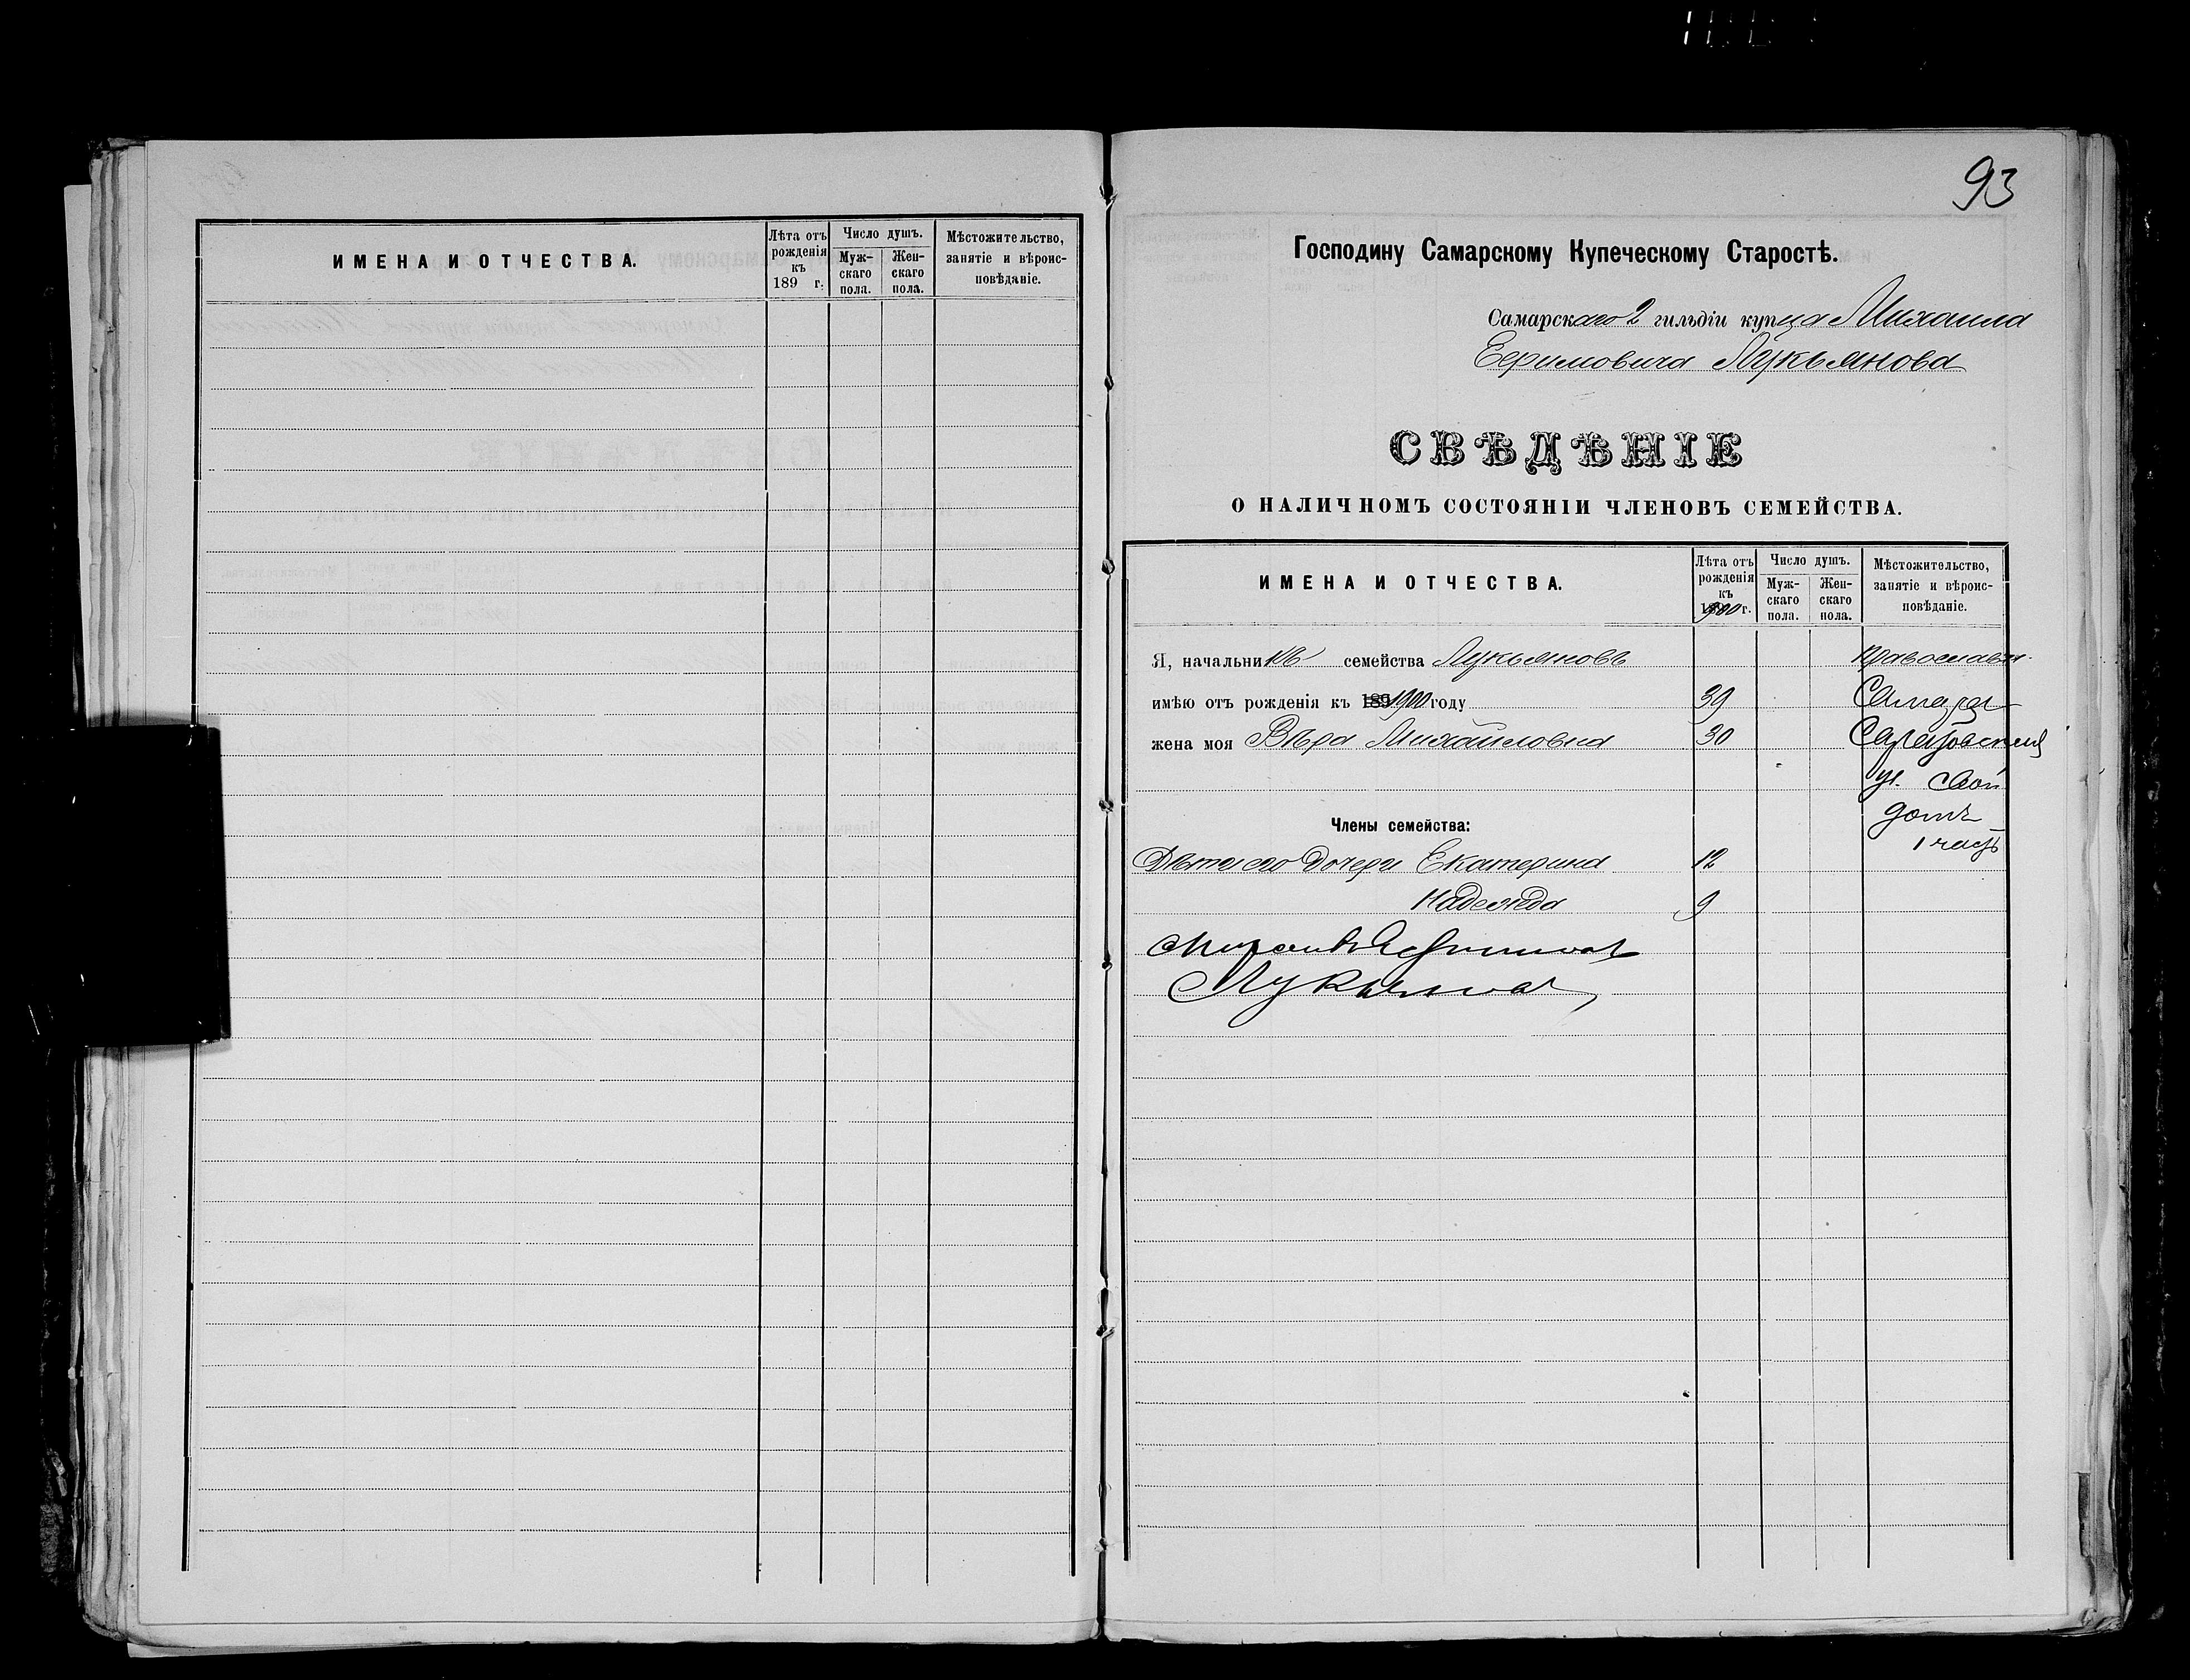 ИМЕНА И ОТЧЕСТВА.
Лѣта отъ рожденія къ 189 г.
Число душъ.
Мужскаго пола.
Женскаго пола.
Мѣстожительство, занятіе и вѣроисповѣданіе.
93
Господину Самарскому Купеческому Старостѣ.
Самарскаго 2 гильдіи купца Михаила
Ефимовича Лукьянова
СВѢДѢНІЕ
О НАЛИЧНОМЪ СОСТОЯНІИ ЧЛЕНОВЪ СЕМЕЙСТВА.
ИМЕНА И ОТЧЕСТВА.
Лѣта отъ рожденія къ 1900 г.
Число душъ.
Мужскаго пола.
Женскаго пола.
Мѣстожительство, занятіе и вѣроисповѣданіе.
Я, начальникъ семейства Лукьяновъ Православн.
имѣю отъ рожденія къ 189 1900 году 39 Самара
жена моя Вѣра Михайловна 30 Саратовская
ул. свой
домъ
Члены семейства:
1 часть
Дѣти его дочери Екатерина 12
Надежда 9
Михаилъ Ефимовъ
Лукьяновъ